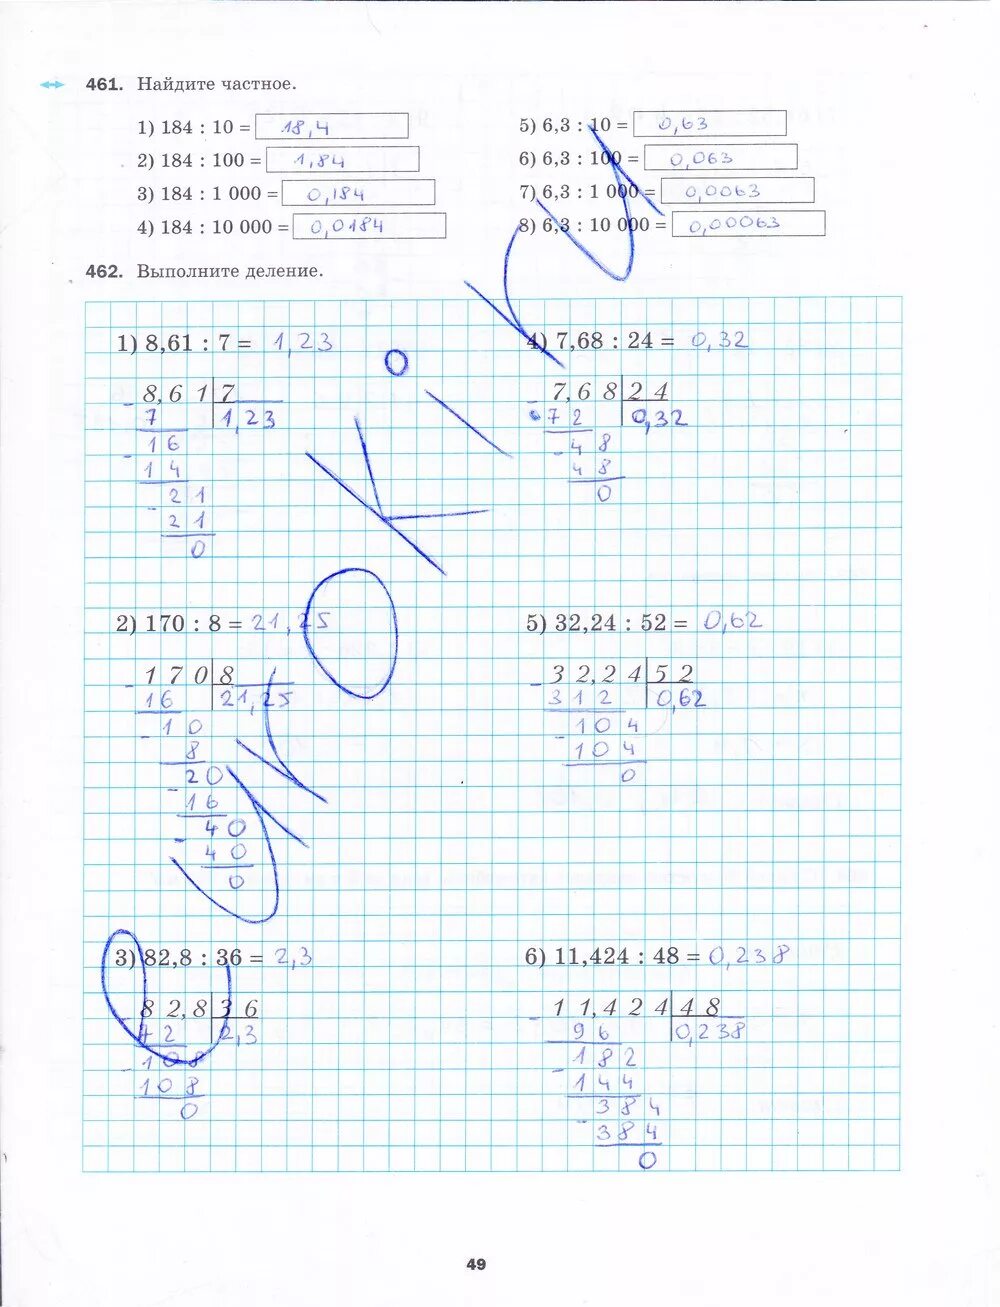 461. Найдите частное.
1) 184 : 10 = 18,4
2) 184 : 100 = 1,84
3) 184 : 1 000 = 0,184
4) 184 : 10 000 = 0,0184
5) 6,3 : 10 = 0,63
6) 6,3 : 100 = 0,063
7) 6,3 : 1 000 = 0,0063
8) 6,3 : 10 000 = 0,00063
462. Выполните деление.
1) 8,61 : 7 = 1,23
8,61 7
7 1,23
16
14
21
21
0
2) 170 : 8 = 21,25
170 8
16 21,25
10
8
20
16
40
40
0
3) 82,8 : 36 = 2,3
82,8 36
72 2,3
108
108
0
4) 7,68 : 24 = 0,32
7,68 24
72 0,32
48
48
0
5) 32,24 : 52 = 0,62
32,24 52
312 0,62
104
104
0
6) 11,424 : 48 = 0,238
11,424 48
96 0,238
182
144
384
384
0
49